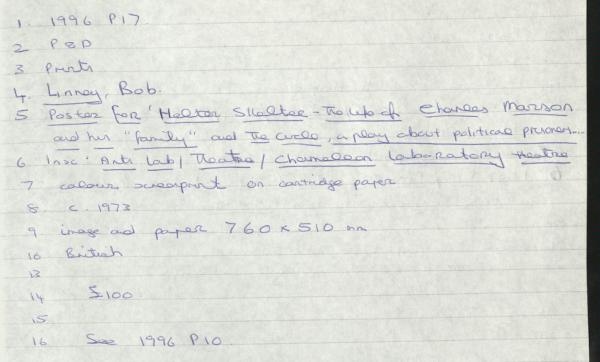 1. 1996 P17
2 P&D
3 Prints
4. Linney, Bob.
5 Poster for 'Helter Skelter - The life of Charles Manson
and his "family" and The Circle, a play about political prisoners...
6 Insc: Arts Lab / Theatre / Chameleon Laboratory theatre
7 colour screenprint on cartridge paper
8. c. 1973
9 image and paper 760 x 510 mm
10 British
13
14 £100
15
16 See 1996 P10